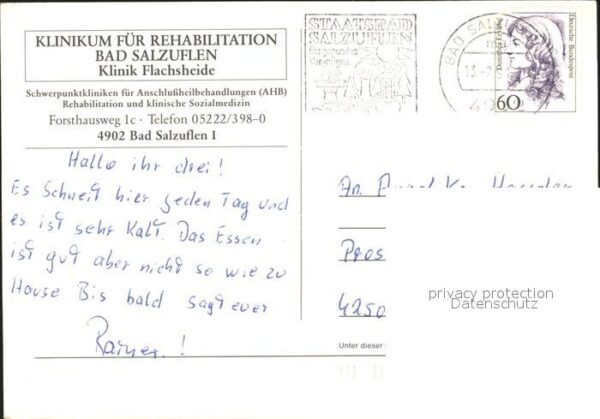 KLINIKUM FÜR REHABILITATION
BAD SALZUFLEN
Klinik Flachsheide
Schwerpunktkliniken für Anschlußheilbehandlungen (AHB)
Rehabilitation und klinische Sozialmedizin
Forsthausweg 1c · Telefon 05222/398-0
4902 Bad Salzuflen 1
Hallo ihr drei!
Es Schneit hier jeden Tag und
es ist sehr Kalt. Das Essen
ist gut aber nicht so wie zu
House Bis bald sagt euer
Rainer!
STAATSBAD
SALZUFLEN
BAD SALZUFLEN
13.
Deutsche Bundespost
60
An
Pros
4250
privacy protection
Datenschutz
Unter dieser